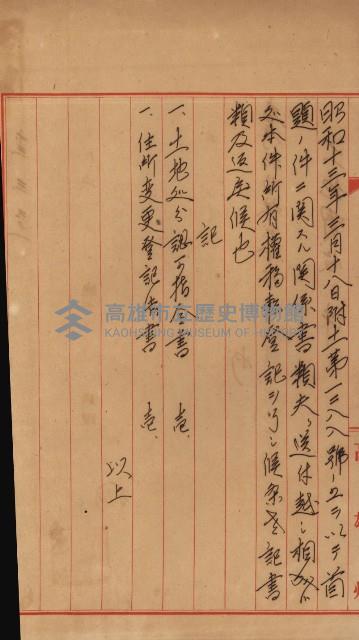 昭和十三年三月十八日附土第一三八八號ヲ以テ首
題ノ件ニ関スル関係書類夫々送付越ニ相成
本件所有權移轉登記ヲ了シ候条左記書
類及返戻候也
記
一、土地処分認可指令書 壱、
一、住所変更登記 書 壱、
以上
高雄州
高雄市立歷史博物館
KAOHSIUNG MUSEUM OF HISTORY